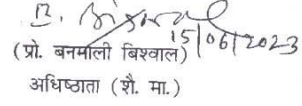 B. Biswal
15/06/2023
(प्रो. बनमाली बिश्वाल)
अधिष्ठाता (शै. मा.)